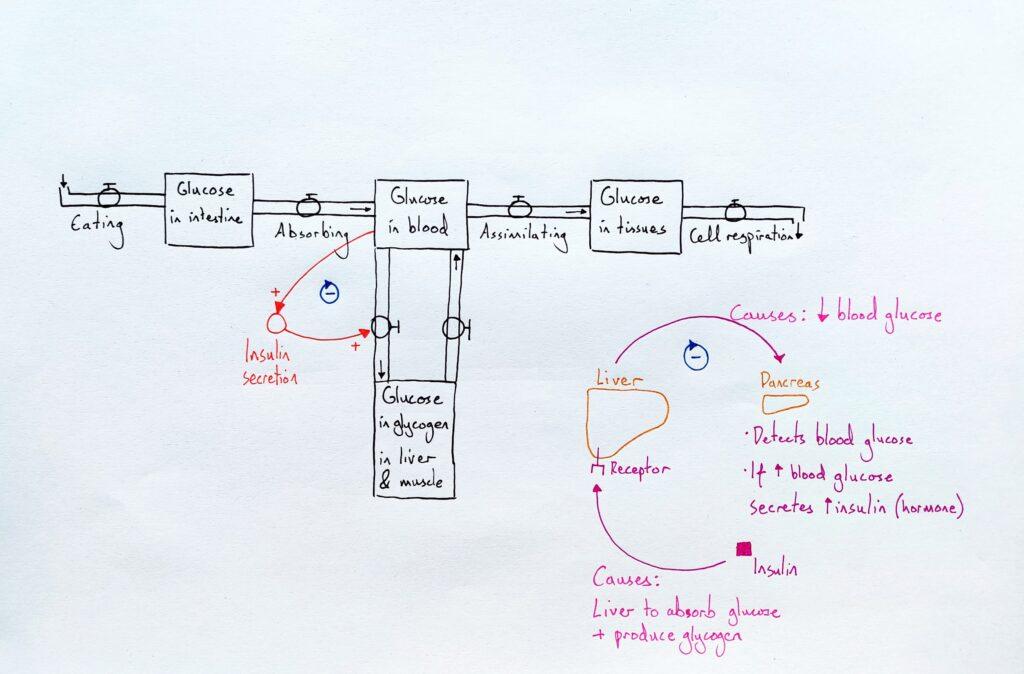 Glucose
in intestine
Eating
Absorbing
Glucose
in blood
Assimilating
Glucose
in tissues
Cell respiration
+
−
+
Insulin
secretion
Glucose
in glycogen
in liver
& muscle
Causes: ↓ blood glucose
−
Liver
Pancreas
· Detects blood glucose
· If ↑ blood glucose
secretes ↑ insulin (hormone)
Receptor
Insulin
Causes:
Liver to absorb glucose
+ produce glycogen